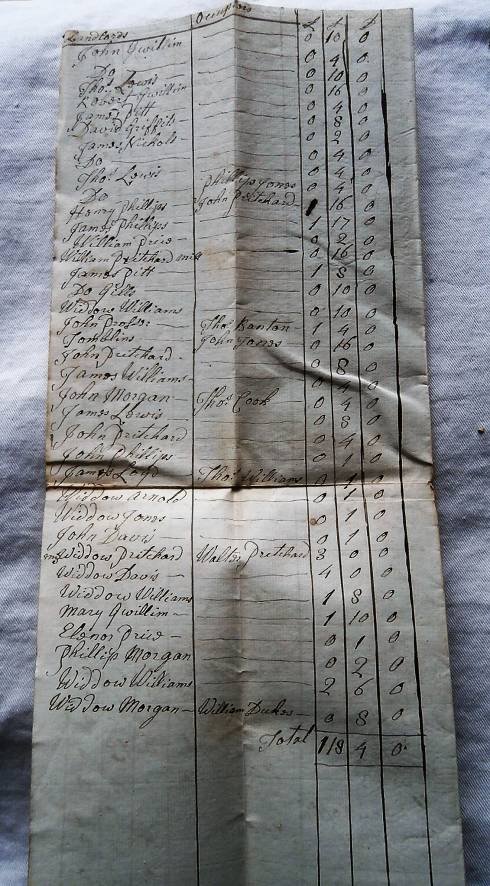 Landlords Occupiers £ s d
John Gwillim 0 10 0
Do 0 4 0
Thos Lewis 0 10 0
Robert Gwillim 0 16 0
James Pitt 0 4 0
David Griffits 0 8 0
James Nichols 0 2 0
Do 0 4 0
Thos Lewis 0 4 0
Do Phillip Jones 0 4 0
Henry Phillips John Pritchard 1 16 0
James Phillips 1 17 0
William Price 0 2 0
William Pritchard mill 0 16 0
James Pitt 1 8 0
Do Gelly 0 10 0
Widdow Williams 0 10 0
John Prosser Thos Banton 1 4 0
Tomblins John Jones 0 16 0
John Pritchard 0 8 0
James Williams 0 4 0
John Morgan Thos Cook 0 4 0
James Lewis 0 8 0
John Pritchard 0 4 0
John Phillips 0 1 0
James Thos Williams 0 0
Widdow Arnold 0 1 0
Widdow Jones 0 1 0
John Davis 0 1 0
Widdow Pritchard Walter Pritchard 3 0 0
Widdow Davis 4 0 0
Widdow Williams 1 8 0
Mary Gwillim 1 10 0
Elenor Price 0 1 0
Phillip Morgan 0 2 0
Widdow Williams 2 6 0
Widdow Morgan William Dukes 0 8 0
Total 4 0